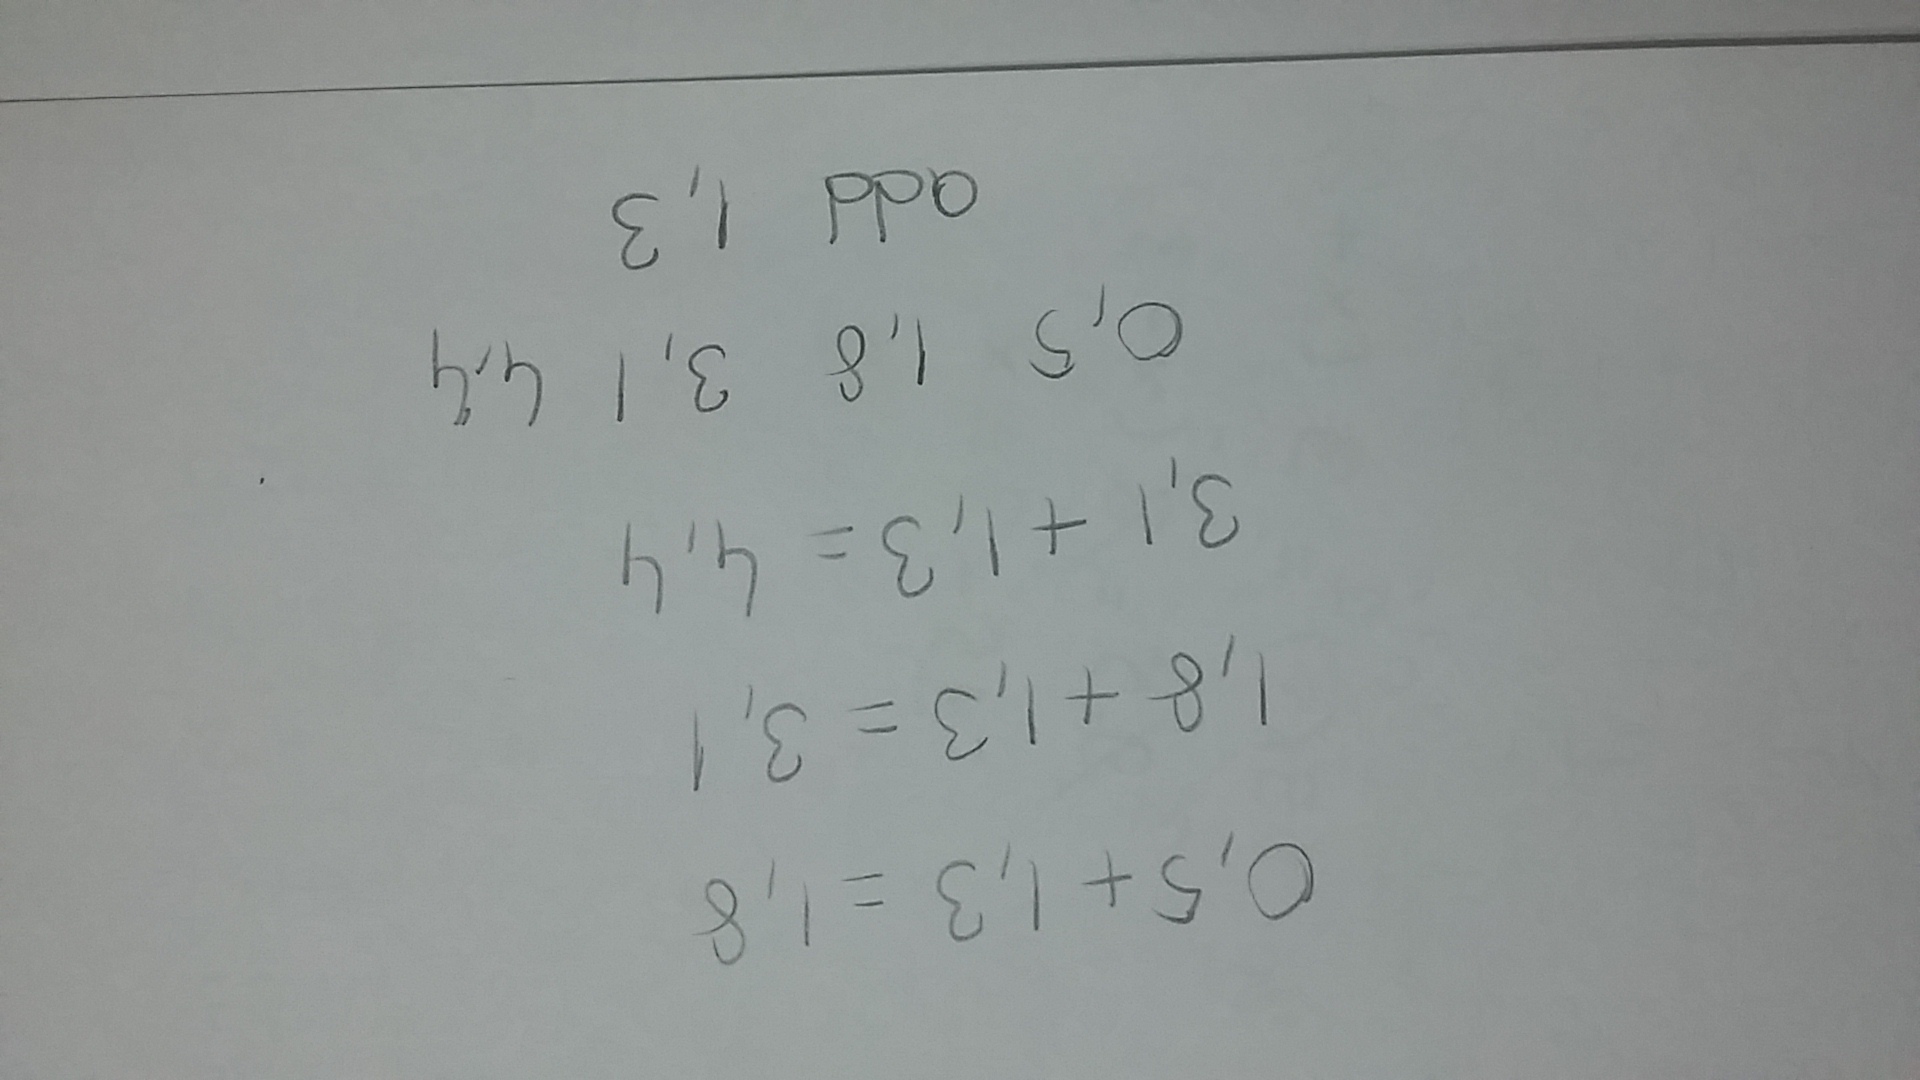 0,5 + 1,3 = 1,8
1,8 + 1,3 = 3,1
3,1 + 1,3 = 4,4
0,5 1,8 3,1 4,4
add 1,3